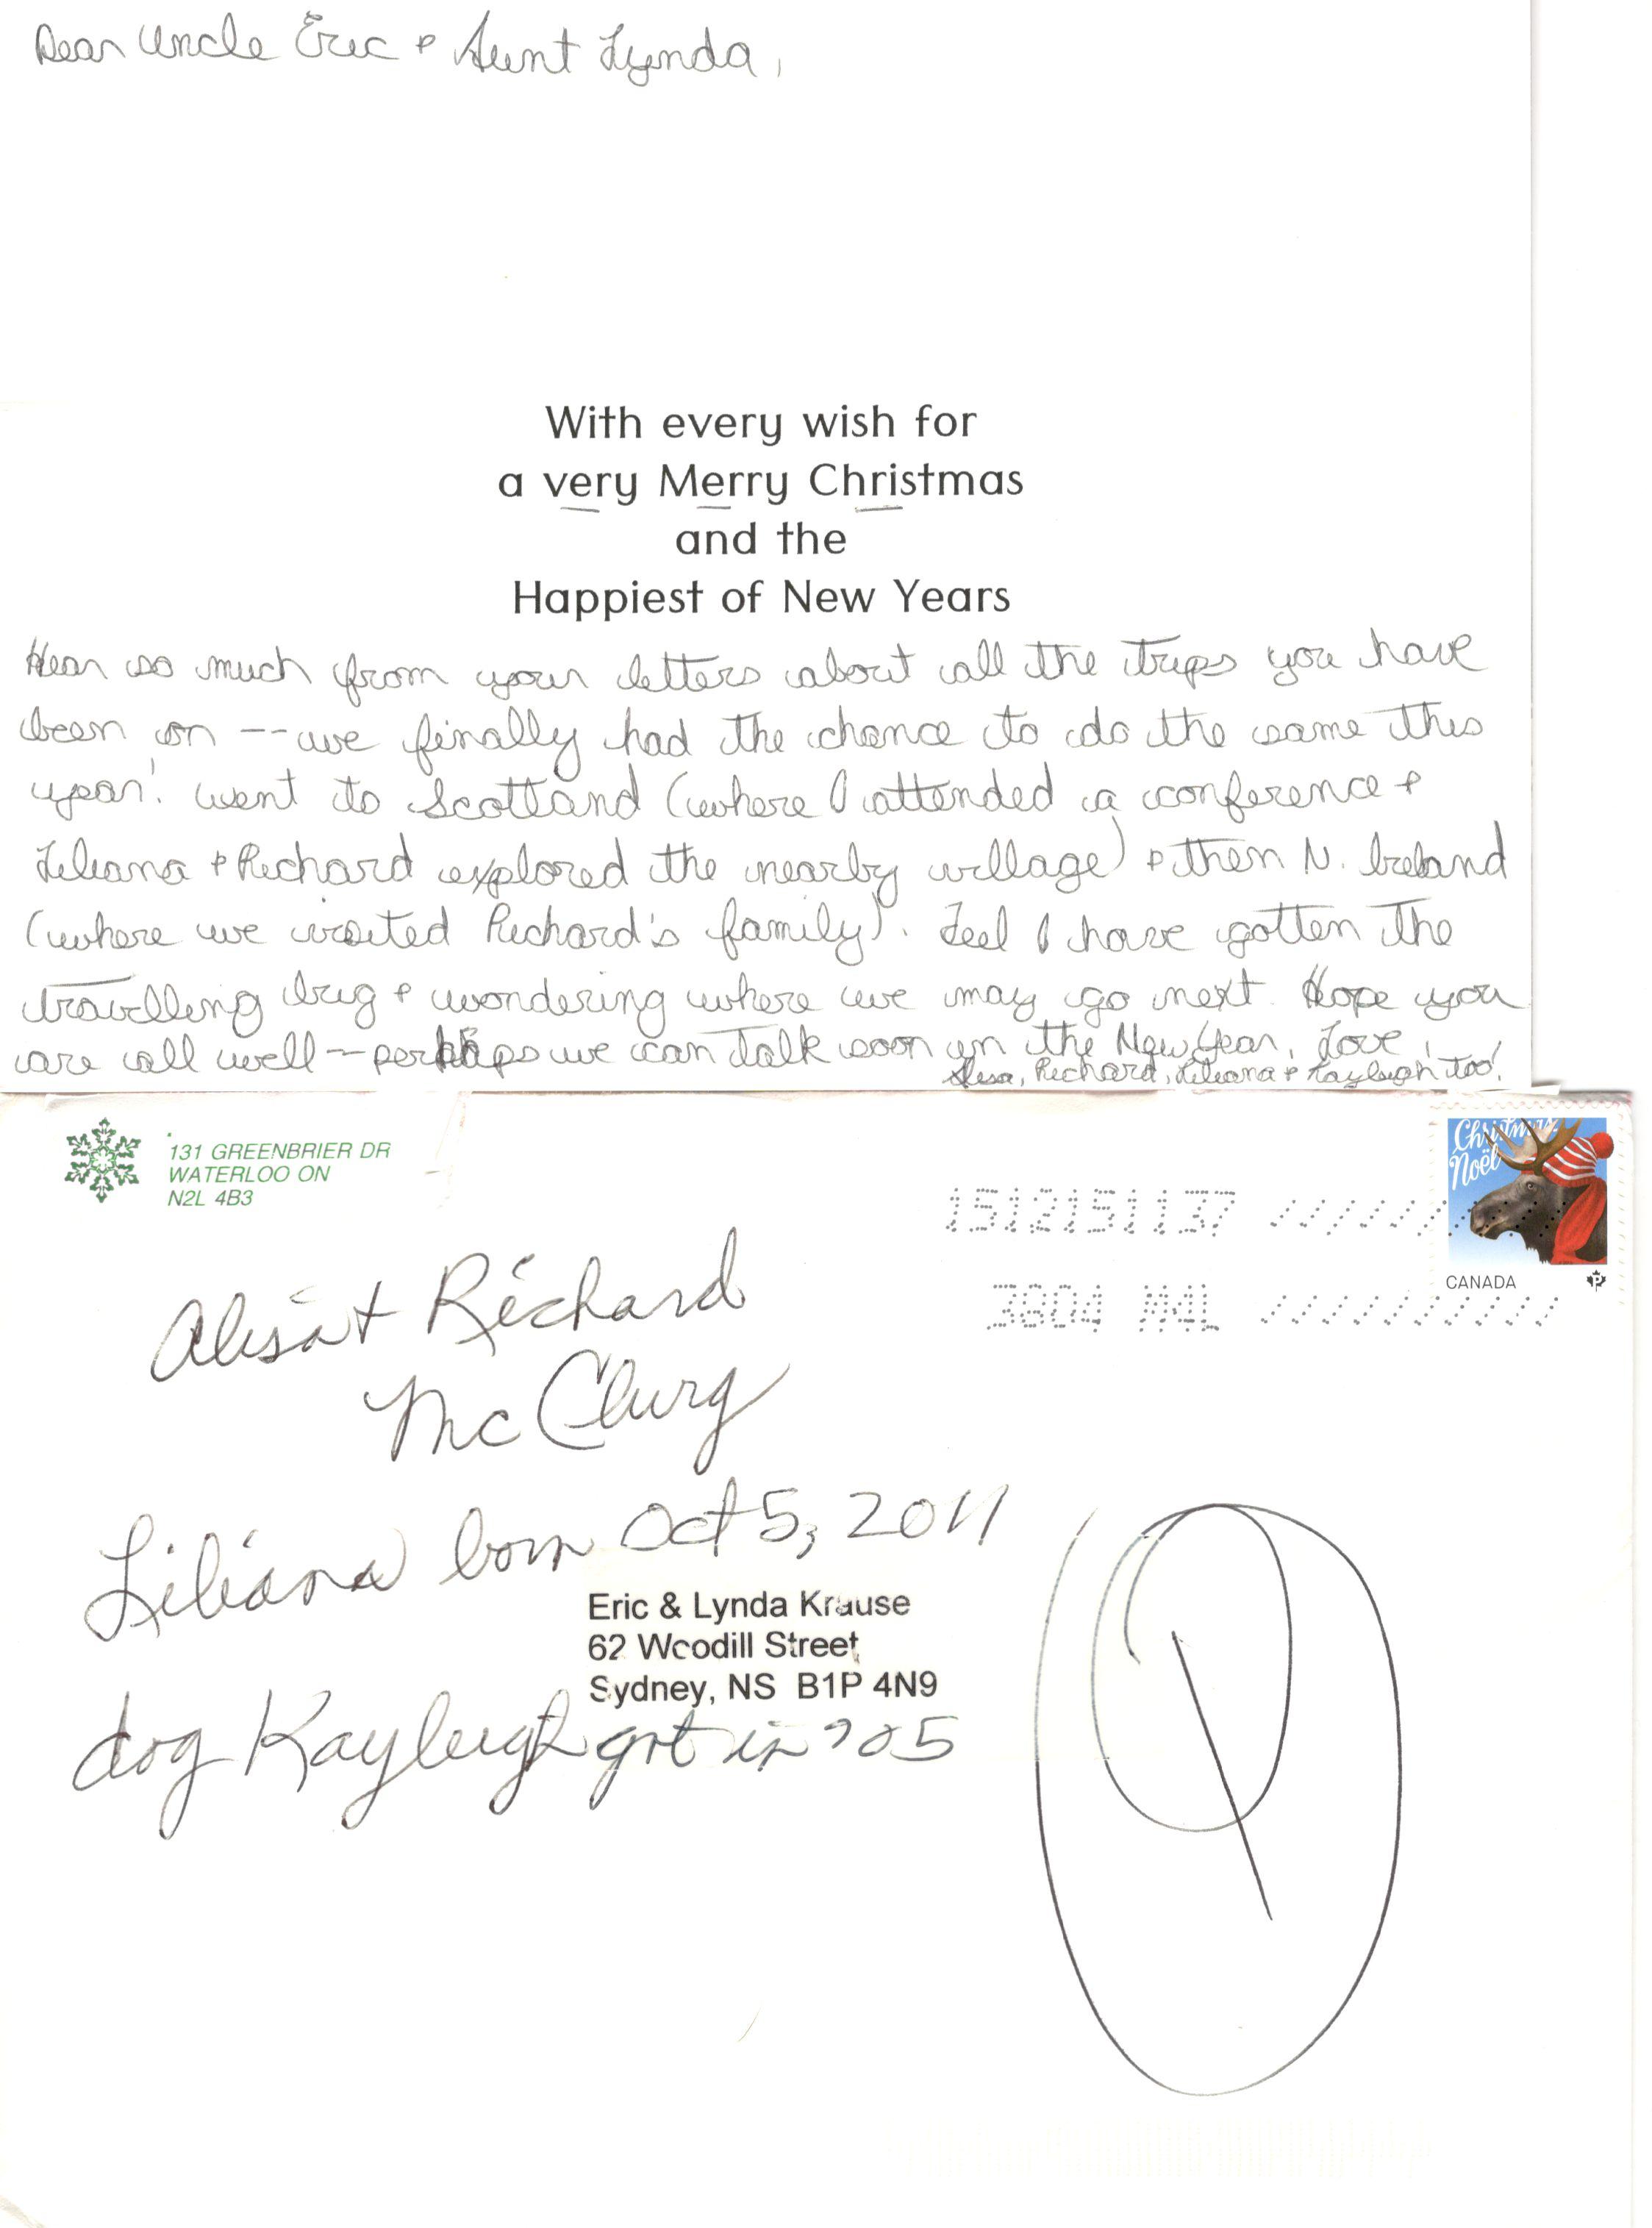 Dear Uncle Eric & Aunt Lynda,
With every wish for
a very Merry Christmas
and the
Happiest of New Years
Hear so much from your letters about all the trips you have
been on -- we finally had the chance to do the same this
year! Went to Scotland (where I attended a conference &
Liliana & Richard explored the nearby village) & then N. Ireland
(where we visited Richard's family). Feel I have gotten the
travelling bug & wondering where we may go next. Hope you
are all well -- perhaps we can talk soon in the New Year. Love,
Alisa, Richard, Liliana & Kayleigh too!
131 GREENBRIER DR
WATERLOO ON
N2L 4B3
Christmas
Noël
1512151137
CANADA
P
3804 M4L
Alisa + Richard
McClurg
Liliana born Oct 5, 2011
Eric & Lynda Krause
62 Woodill Street
Sydney, NS B1P 4N9
dog Kayleigh got in '05